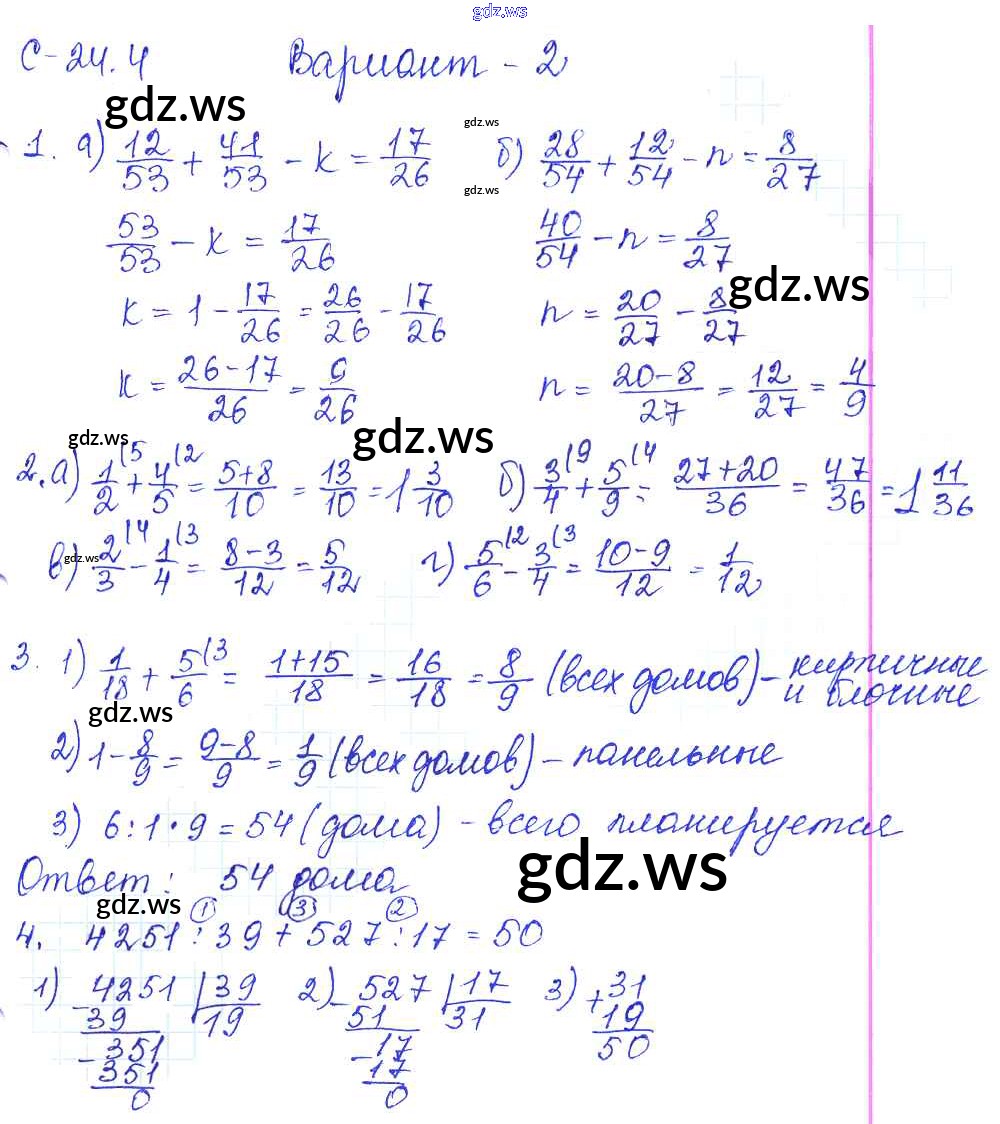 gdz.ws
С-24.4 Вариант - 2
gdz.ws
gdz.ws
1. а) 12/53 + 41/53 - к = 17/26 б) 28/54 + 12/54 - n = 8/27
gdz.ws
53/53 - к = 17/26 40/54 - n = 8/27
gdz.ws
к = 1 - 17/26 = 26/26 - 17/26 n = 20/27 - 8/27
к = 26-17/26 = 9/26 n = 20-8/27 = 12/27 = 4/9
gdz.ws gdz.ws
2. а) 1/2 (5 + 4/5 (2 = 5+8/10 = 13/10 = 1 3/10 б) 3/4 (9 + 5/9 (4 = 27+20/36 = 47/36 = 1 11/36
gdz.ws
в) 2/3 (4 - 1/4 (3 = 8-3/12 = 5/12 г) 5/6 (2 - 3/4 (3 = 10-9/12 = 1/12
3. 1) 1/18 + 5/6 (3 = 1+15/18 = 16/18 = 8/9 (всех домов) - кирпичные
и блочные
gdz.ws
2) 1 - 8/9 = 9-8/9 = 1/9 (всех домов) - панельные
3) 6 : 1 · 9 = 54 (дома) - всего планируется
gdz.ws
Ответ: 54 дома
gdz.ws
1 3 2
4. 4251 : 39 + 527 : 17 = 50
1) 4251 | 39 2) 527 | 17 3) + 31
- 39 19 - 51 31 19
- 351 - 17 50
351 17
0 0